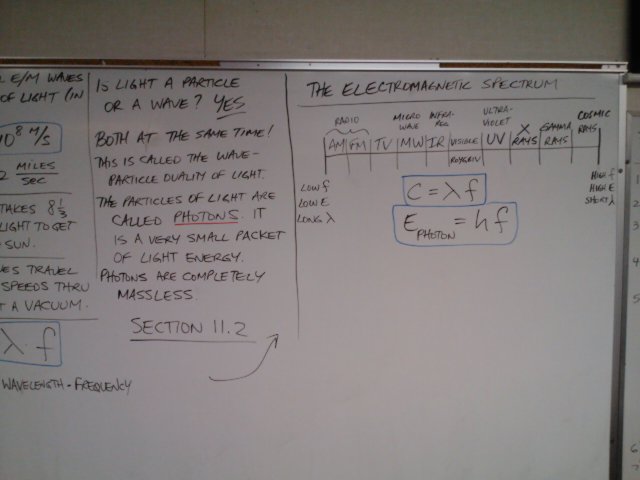 E/M WAVES
OF LIGHT (IN
10⁸ M/S
2 MILES
SEC
TAKES 8 1/3
LIGHT TO GET
SUN.
ES TRAVEL
SPEEDS THRU
T A VACUUM.
λ·f
WAVELENGTH - FREQUENCY
IS LIGHT A PARTICLE
OR A WAVE? YES
BOTH AT THE SAME TIME!
THIS IS CALLED THE WAVE-
PARTICLE DUALITY OF LIGHT.
THE PARTICLES OF LIGHT ARE
CALLED PHOTONS. IT
IS A VERY SMALL PACKET
OF LIGHT ENERGY.
PHOTONS ARE COMPLETELY
MASSLESS.
SECTION 11.2
THE ELECTROMAGNETIC SPECTRUM
RADIO
AM FM TV
MICRO
WAVE
MW
INFRA-
RED
IR
VISIBLE
ROYGBIV
ULTRA-
VIOLET
UV
X
RAYS
GAMMA
RAYS
COSMIC
RAYS
LOW f
LOW E
LONG λ
C = λf
E PHOTON = hf
HIGH f
HIGH E
SHORT λ
1
2
3
4
5
6
7